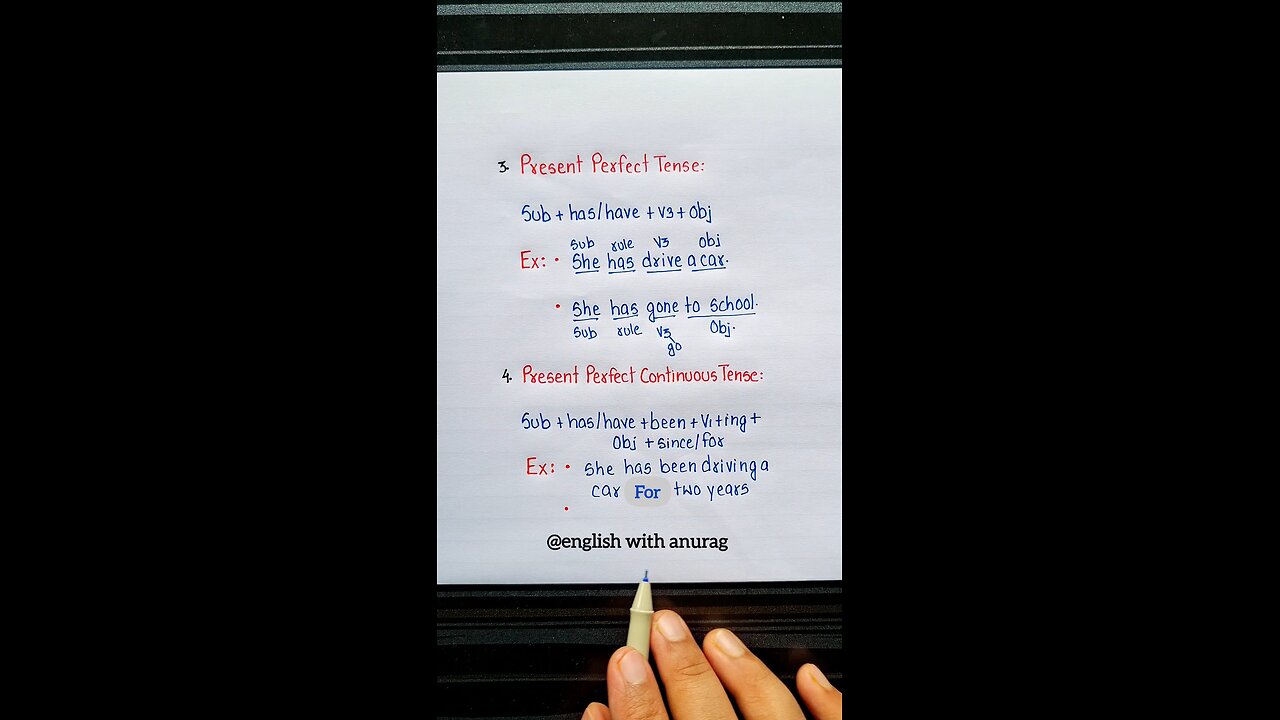 3. Present Perfect Tense:
Sub + has/have + V3 + Obj
Sub rule V3 Obj
Ex: • She has drive a car.
• She has gone to school.
Sub rule V3 Obj.
go
4. Present Perfect Continuous Tense:
Sub + has/have + been + V1 + ing +
Obj + since/for
Ex: • She has been driving a
car For two years
•
@english with anurag